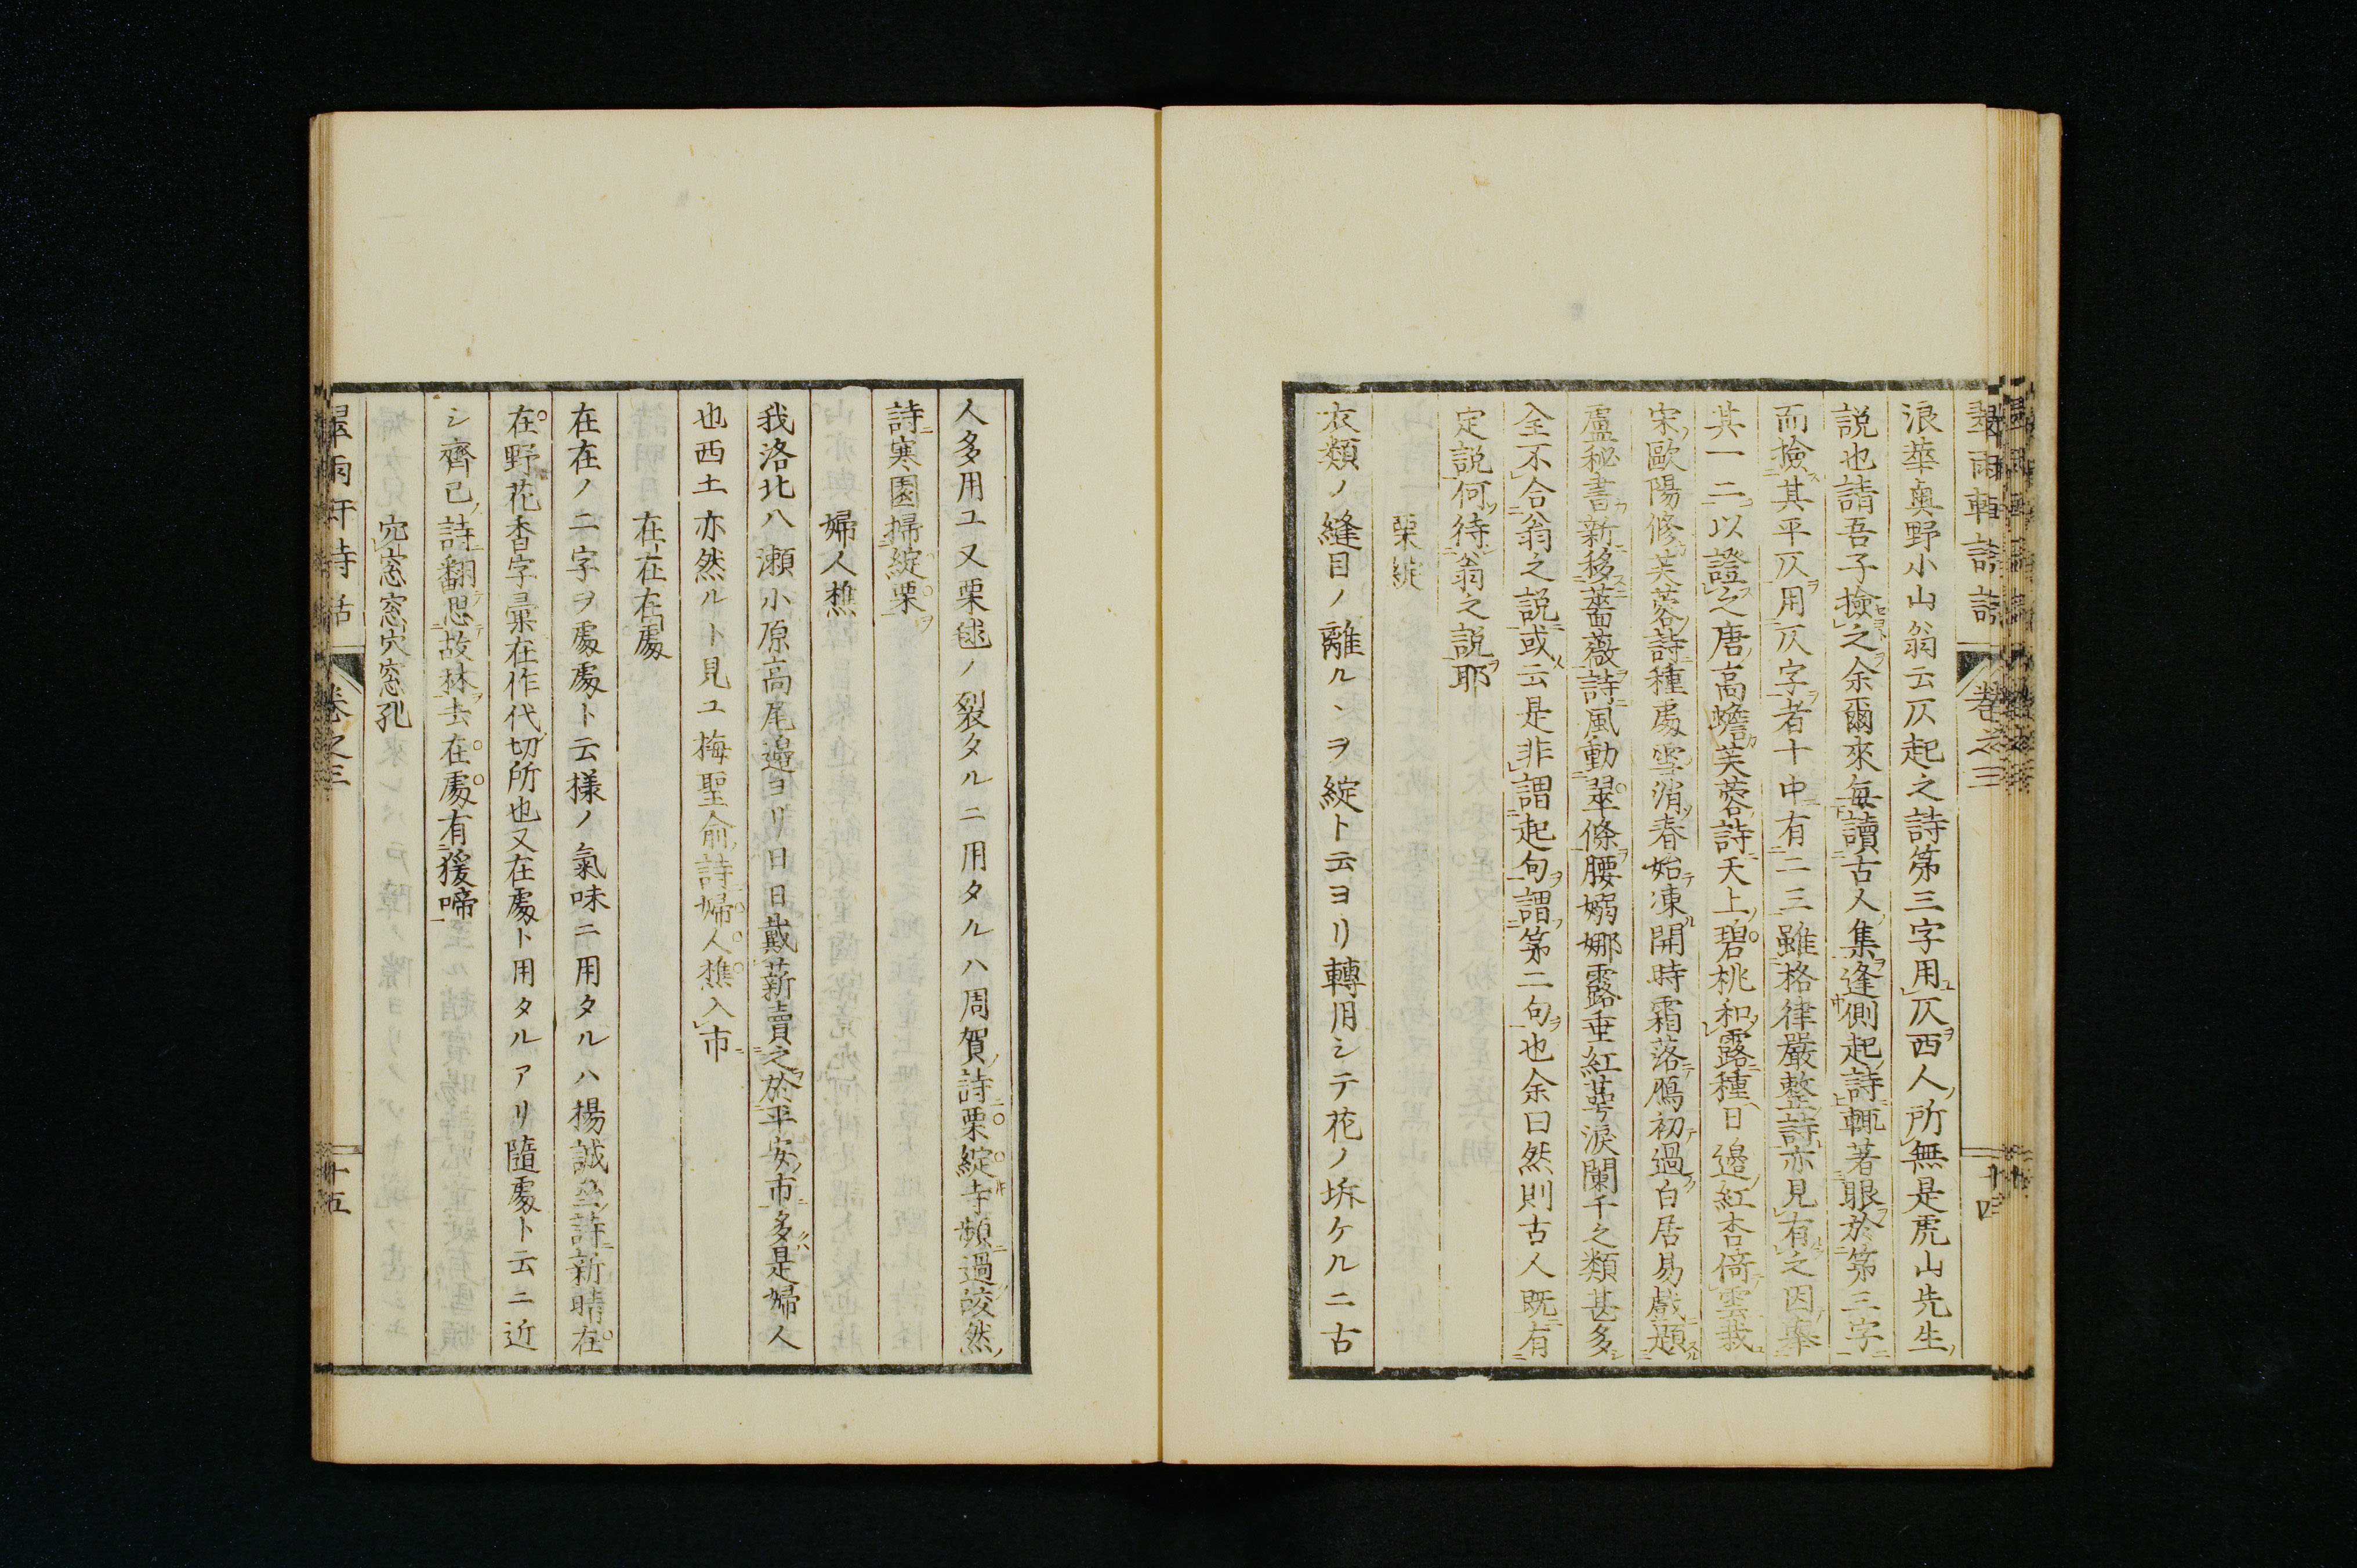 翠雨軒詩話 卷之三 十四
浪華奥野小山翁云仄起之詩第三字用仄西人所無是虎山先生
説也請吾子撿之余爾來毎讀古人集逢側起詩輒著眼於第三字
而撿其平仄用仄字者十中有二三雖格律嚴整詩亦見有之因舉
其一二以證之唐高蟾芙蓉詩天上碧桃和露種日邊紅杏倚雲栽
宋歐陽修芙蓉詩種處雪消春始凍開時霜落鴈初過白居易戲題
盧秘書新移薔薇詩風動翠條腰嫋娜露垂紅萼淚闌干之類甚多
全不合翁之説或云是非謂起句謂第二句也余曰然則古人既有
定説何待翁之説耶
栗綻
衣類ノ縫目ノ離ルヽヲ綻ト云ヨリ轉用シテ花ノ坼ケルニ古
人多用ユ又栗毬ノ裂タルニ用タルハ周賀詩栗綻寺頻過皎然
詩寒園掃綻栗
婦人樵
我洛北八瀬小原高尾邉ヨリ日日戴薪賣之於平安市多是婦人
也西土亦然ルト見ユ梅聖俞詩婦人樵入市
在在在處
在在ノ二字ヲ處處ト云様ノ氣味ニ用タルハ揚誠齋詩新晴在
在野花香字彙在作代切所也又在處ト用タルアリ隨處ト云ニ近
シ齊己詩翻思故林去在處有猨啼
宂窓窓穴窓孔
翠雨軒詩話 卷之三 十五